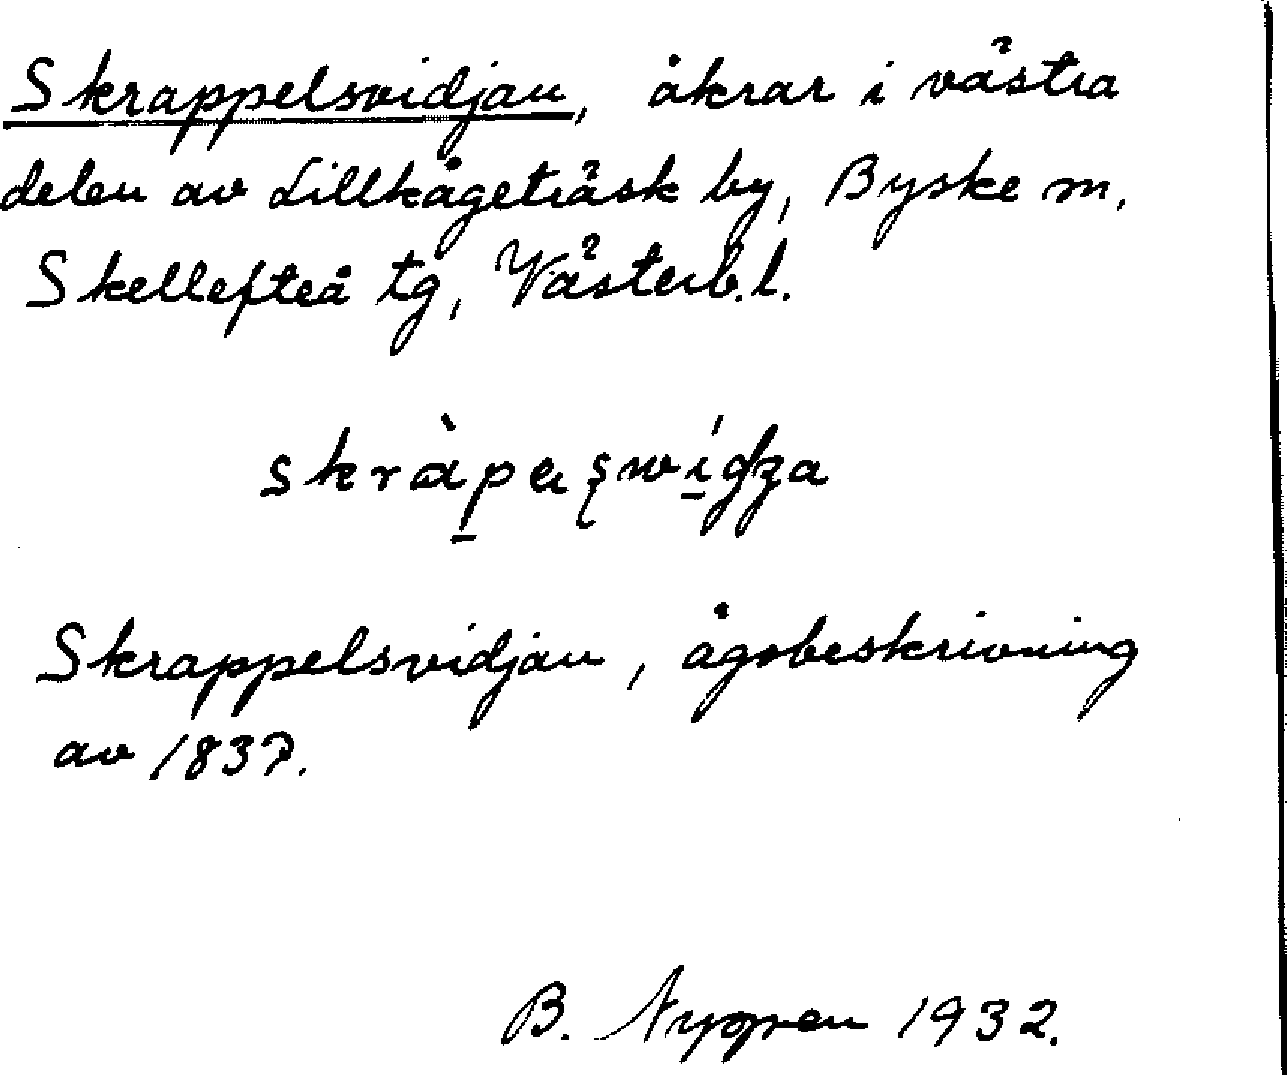 Skrappelsvidjan, åkrar i västra
delen av Lillkågeträsk by, Byske sn,
Skellefteå tg, Västerb.l.
Skrappelsvidjan, ägobeskrivning
av 1837.
B. Nygren 1932.